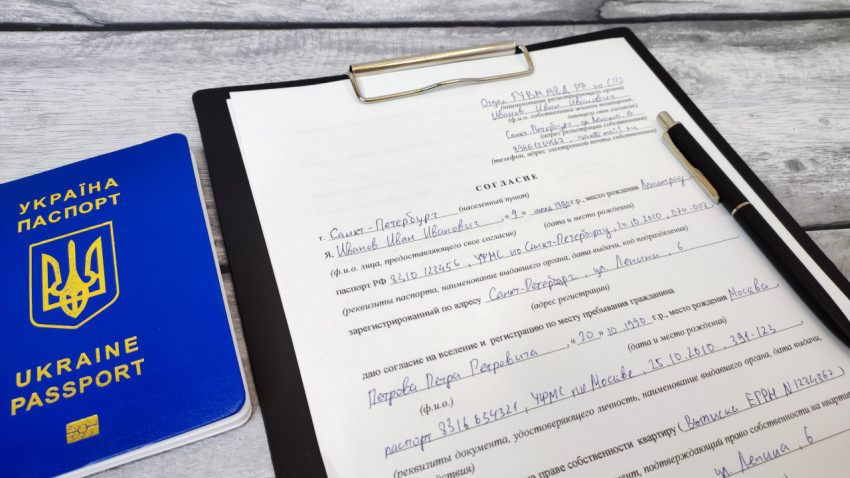 УКРАЇНА
ПАСПОРТ
UKRAINE
PASSPORT
Отдел ГУВМ МВД РФ по СПб
(наименование регистрирующего органа)
Иванов Иван Иванович
(ф.и.о. собственника жилого помещения,
дающего свое согласие)
Санкт-Петербург, ул Ленина 6
(адрес регистрации собственника)
89661234567
(телефон, адрес электронной почты собственника)
СОГЛАСИЕ
г. Санкт-Петербург
(населенный пункт)
Я, Иванов Иван Иванович, «9» июня 1990 г.р., место рождения Ленинград
(ф.и.о. лица, предоставляющего свое согласие) (дата и место рождения)
паспорт РФ 8310 123456, УФМС по Санкт-Петербургу, 20.10.2010, 070-007,
(реквизиты паспорта, наименование выдавшего органа, дата выдачи, код подразделения)
зарегистрированный по адресу Санкт-Петербург, ул Ленина, 6
(адрес регистрации)
даю согласие на вселение и регистрацию по месту пребывания гражданина
Петрова Петра Петровича, «20» 10.1990 г.р., место рождения Москва,
(ф.и.о.) (дата и место рождения)
паспорт 8316 654321, УФМС по Москве, 25.10.2010, 391-123
(реквизиты документа, удостоверяющего личность, наименование выдавшего органа, дата выдачи,
действия)
на праве собственности квартиру (Выписка ЕГРН N1234567)
подтверждающий право собственности на квартир
ул Ленина, 6